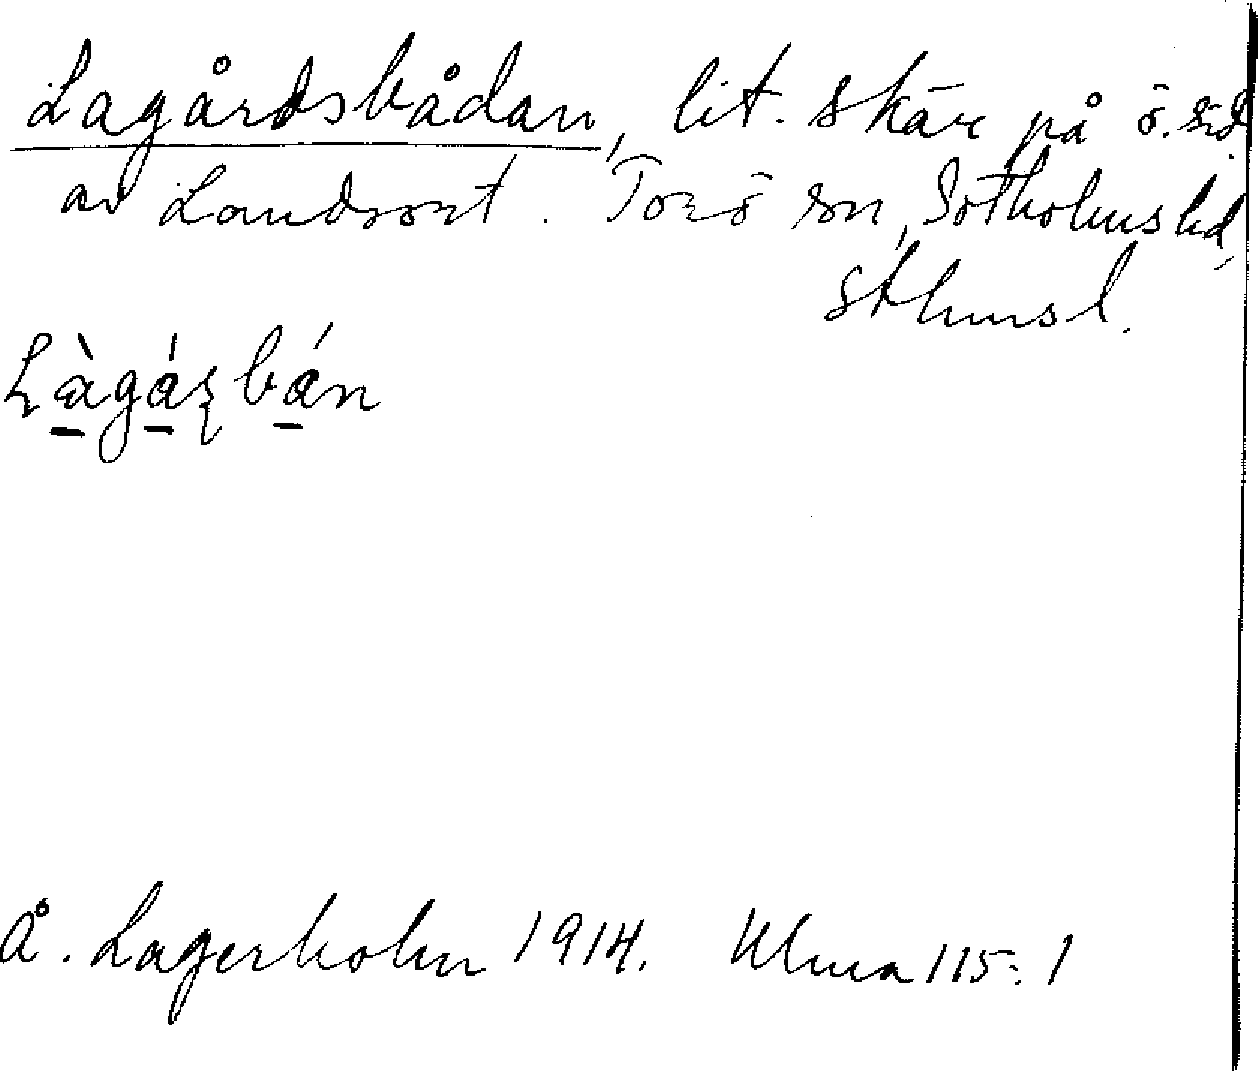 Lagårdsbådan, lit. skär på ö. sid.
av Landsort. Torö sn, Sotholms hd,
sthmsl.
Làgáʂbán
Å. Lagerholm 1914. Ulma 115:1